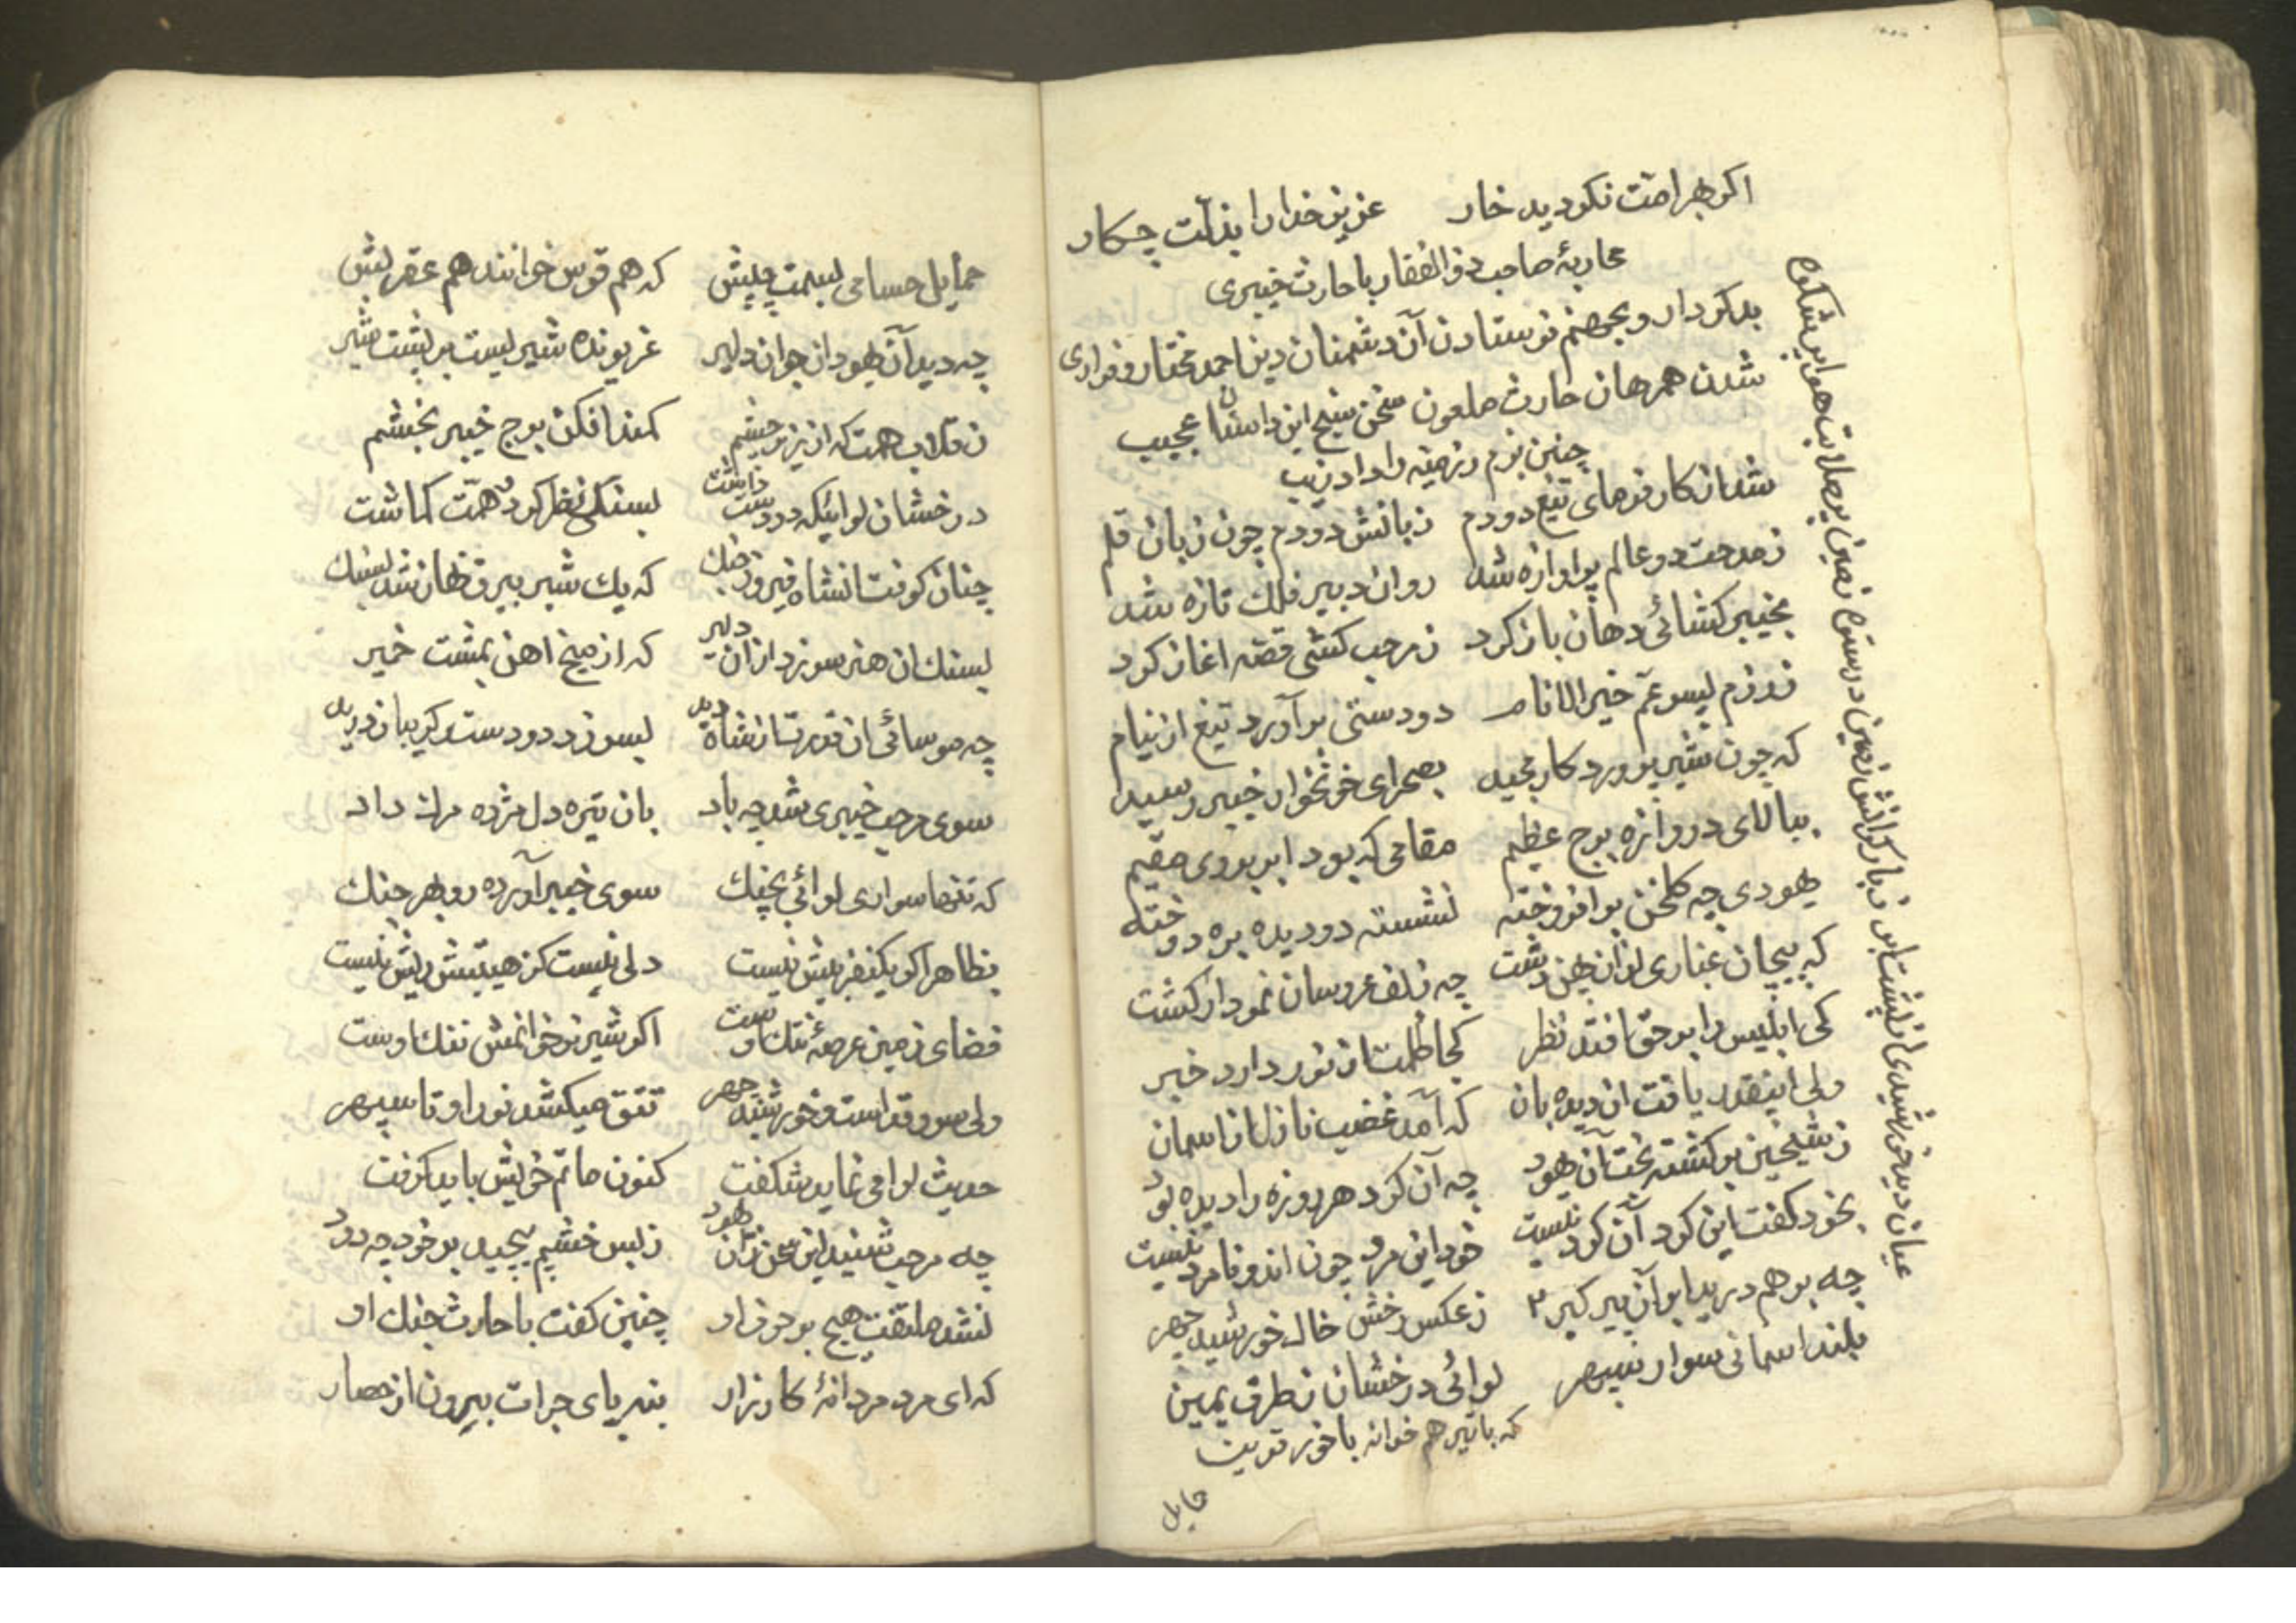 اکر هرا منت نکردید خار عزیز خدا را بذلت چکار
محاربهٔ صاحب ذو الفقار با حارث خیبری
بدکردار و بجهنم فرستادن آن دشمنان دین احمد مختار و فراری
شدن همرهان حارث ملعون سخن سنج این داستان عجیب
چنین بزم رزمیه را داد زیب
شدا ز کار فرمای تیغ دو دم زبانش دو دم چون زبان قلم
ز مدحت دو عالم پر اوازه شد روان دبیر فلک تازه شد
بخیبر کشائی دهان باز کرد ز مرحب کشی قصه اغاز کرد
ز رزم پسر عم خیر الانام دو دستی بر آورد تیغ از نیام
که چون شیر پرورد کار مجید بصحرای خونخوار خیبر رسید
ببالای دروازه برج عظیم مقامی که بود ابر بر وی مقیم
یهودی چه کلخن بر افروخته نشسته دو دیده بره دوخته
که پیچان غباری از آن پهن دشت چه زلف عروسان نمودار کشت
کی ابلیس را بر حق افتد نظر کجا ظلمت از نور دارد خبر
ولی اینقدر یافت ان دیده بان که آمد غضب نازل از اسمان
ز شیخین برکشته بخت آن یهود چه آن کرد هر روزه را دیده بود
بخود کفت این کرد آن کرد نیست خود این مرد چون اندو نامرد نیست
چه بر هم درید ابر آن پیر کبر ز عکس رخش خال خورشید چهر
بلند اسمانی سوار سپهر لوائی درخشان ز طرف یمین
که با تیر هم خوانه با خور قرین
حمایل
عیان دید خورشیدی از پشت ابر ز بار کرانش زمین در ستوه زمین پر صلابت هوا پر شکوه
حمایل حسامی بسمت چپش که هم قوس خوانند هم عقربش
چه دید آن یهود ان جوان دلیر غریونده شیریست بر پشت شیر
ز قلاب همت که از نیزه چشم کمند افکن برج خیبر بخشم
درخشان لوائیکه در دست داشت بسنکی نظر کرد و همت کماشت
چنان کوفت انشاه فیروز جنک که یک شیر بیرق نهان شد بسنک
بسنک ان هنر سر زد از ان دلیر که از میخ اهن بمشت خمیر
چه موسائی ان قدرت از شاه دید بسر زد دو دست و کریبان درید
سوی مرحب خیبری شد چه باد بان تیره دل مژده مرک داد
که تنها سواری لوائی بچنک سوی خیبر آورده رو بهر جنک
بظاهر اکر یکنفر بیش نیست دلی نیست کز هیبتش ریش نیست
فضای زمین عرصهٔ تنک اوست اکر شیر نر خوانمش ننک اوست
ولی سرو قد است و خورشید چهر تتق میکشد نور او تا سپهر
حدیث لوا می نماید شکفت کنون ماتم خویش باید کرفت
چه مرحب شنید این سخن زان یهود ز بس خشم پیچید بر خود چه دود
نشد ملتفت هیچ بر حرف او چنین کفت با حارث جنک او
که ای مرد مردانهٔ کارزار بنه پای جرات بیرون از حصار